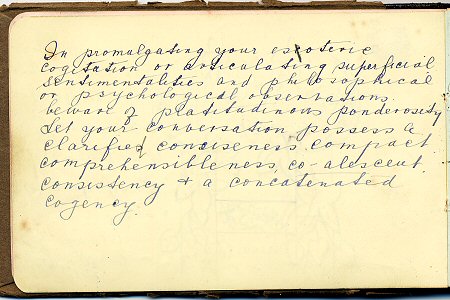 In promalgating your esxoteric
cogitation or articulating superficial
sentimentalities and philosophical
or psychological observations.
beware of platitudinous ponderosity
Let your conversation possess a
clarified conciseness compact
comprehensibleness, co-alescent
consistency + a concatenated
cogency.